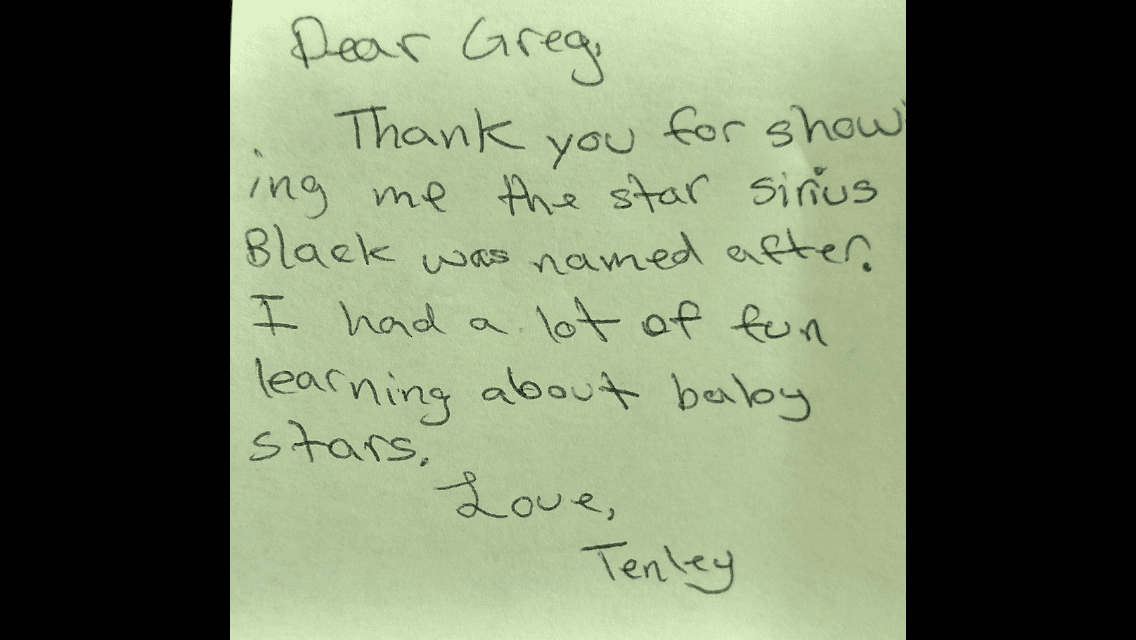 Dear Greg,
Thank you for show
ing me the star sirius
Black was named after.
I had a lot of fun
learning about baby
stars.
Love,
Tenley